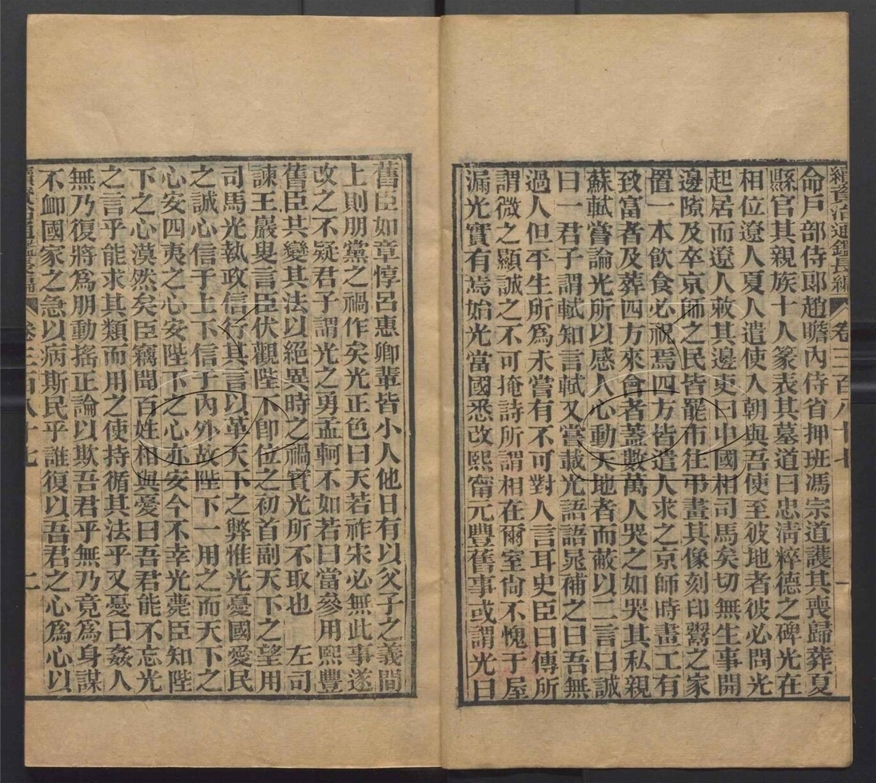 續資治通鑑長編 卷三百八十七 一
命戶部侍郎趙瞻內侍省押班馮宗道護其喪歸葬夏
縣官其親族十人篆表其墓道曰忠淸粹德之碑光在
相位遼人夏人遣使入朝與吾使至彼地者彼必問光
起居而遼人敕其邊吏曰中國相司馬矣切無生事開
邊隙及卒京師之民皆罷巿往弔畫其像刻印鬻之家
置一本飮食必祝焉四方皆遣人求之京師時畫工有
致富者及葬四方來會者蓋數萬人哭之如哭其私親
蘇軾嘗論光所以感人心動天地者而蔽以二言曰誠
曰一君子謂軾知言軾又嘗載光語語晁補之曰吾無
過人但平生所爲未嘗有不可對人言耳史臣曰傳所
謂微之顯誠之不可掩詩所謂相在爾室尙不愧于屋
漏光實有焉始光當國悉改熙甯元豐舊事或謂光曰
舊臣如章惇呂惠卿輩皆小人他日有以父子之義間
上則朋黨之禍作矣光正色曰天若祚宋必無此事遂
改之不疑君子謂光之勇孟軻不如若曰當參用熙豐
舊臣共變其法以絕異時之禍實光所不取也 左司
諫王巖叟言臣伏觀陛下卽位之初首副天下之望用
司馬光執政信行其言以革天下之弊惟光憂國愛民
之誠心信于上下信于內外故陛下一用之而天下之
心安四夷之心安陛下之心亦安今不幸光薨臣知陛
下之心漠然矣臣竊聞百姓相與憂曰吾君能不忘光
之言乎能求其類而用之使持循其法乎又憂曰姦人
無乃復將爲朋動搖正論以欺吾君乎無乃竟爲身謀
不卹國家之急以病斯民乎誰復以吾君之心爲心以
續資治通鑑長編 卷三百八十七